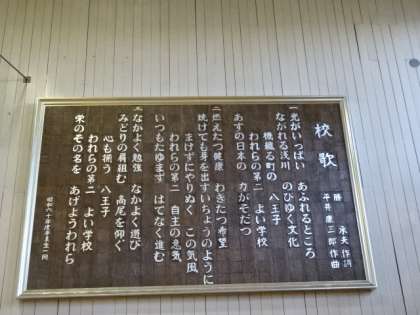 校歌
勝 承夫 作詞
平井 康三郎 作曲
一 光がいっぱい あふれるところ
ながれる浅川 のびゆく文化
機織る町の 八王子
われらの第二 よい学校
あすの日本の 力がそだつ
二 燃えたつ健康 わきたつ希望
焼けても芽を出すいちょうのように
まけずにやりぬく この気風
われらの第二 自主の意気
いつもたゆまず はてなく進む
三 なかよく勉強 なかよく遊び
みどりの肩組む 高尾を仰ぐ
心も揃う 八王子
われらの第二 よい学校
栄のその名を あげようわれら
昭和六十年度卒業生一同